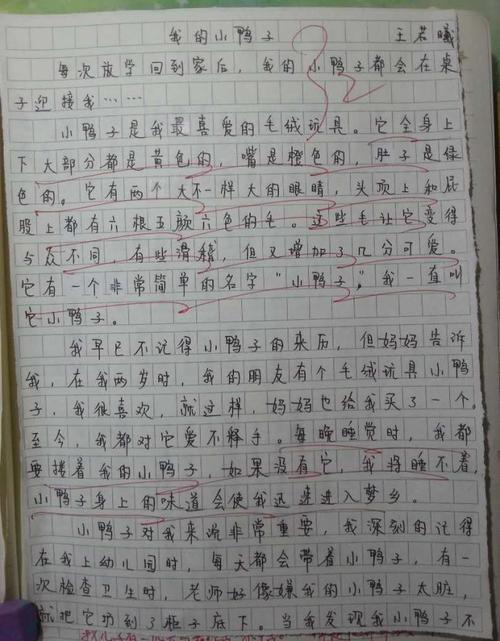 我的小鸭子 王若曦
每次放学回到家后，我的小鸭子都会在桌
子迎接我……
小鸭子是我最喜爱的毛绒玩具。它全身上
下大部分都是黄色的，嘴是橙色的，肚子是绿
色的。它有两个大不一样大的眼睛，头顶上和屁
股上都有六根五颜六色的毛。这些毛让它变得
与众不同，有些滑稽，但又增加了几分可爱。
它有一个非常简单的名字“小鸭子”，我一直叫
它小鸭子。
我早已不记得小鸭子的来历，但妈妈告诉
我，在我两岁时，我的朋友有个毛绒玩具小鸭
子，我很喜欢，就这样，妈妈也给我买了一个。
至今，我都对它爱不释手。每晚睡觉时，我都
要搂着我的小鸭子，如果没有它，我将睡不着，
小鸭子身上的味道会使我迅速进入梦乡。
小鸭子对我来说非常重要，我深刻的记得
在我上幼儿园时，每天都会带着小鸭子，有一
次检查卫生时，老师好像嫌我的小鸭子太脏，
就把它扔到了柜子底下。当我发现我小鸭子不